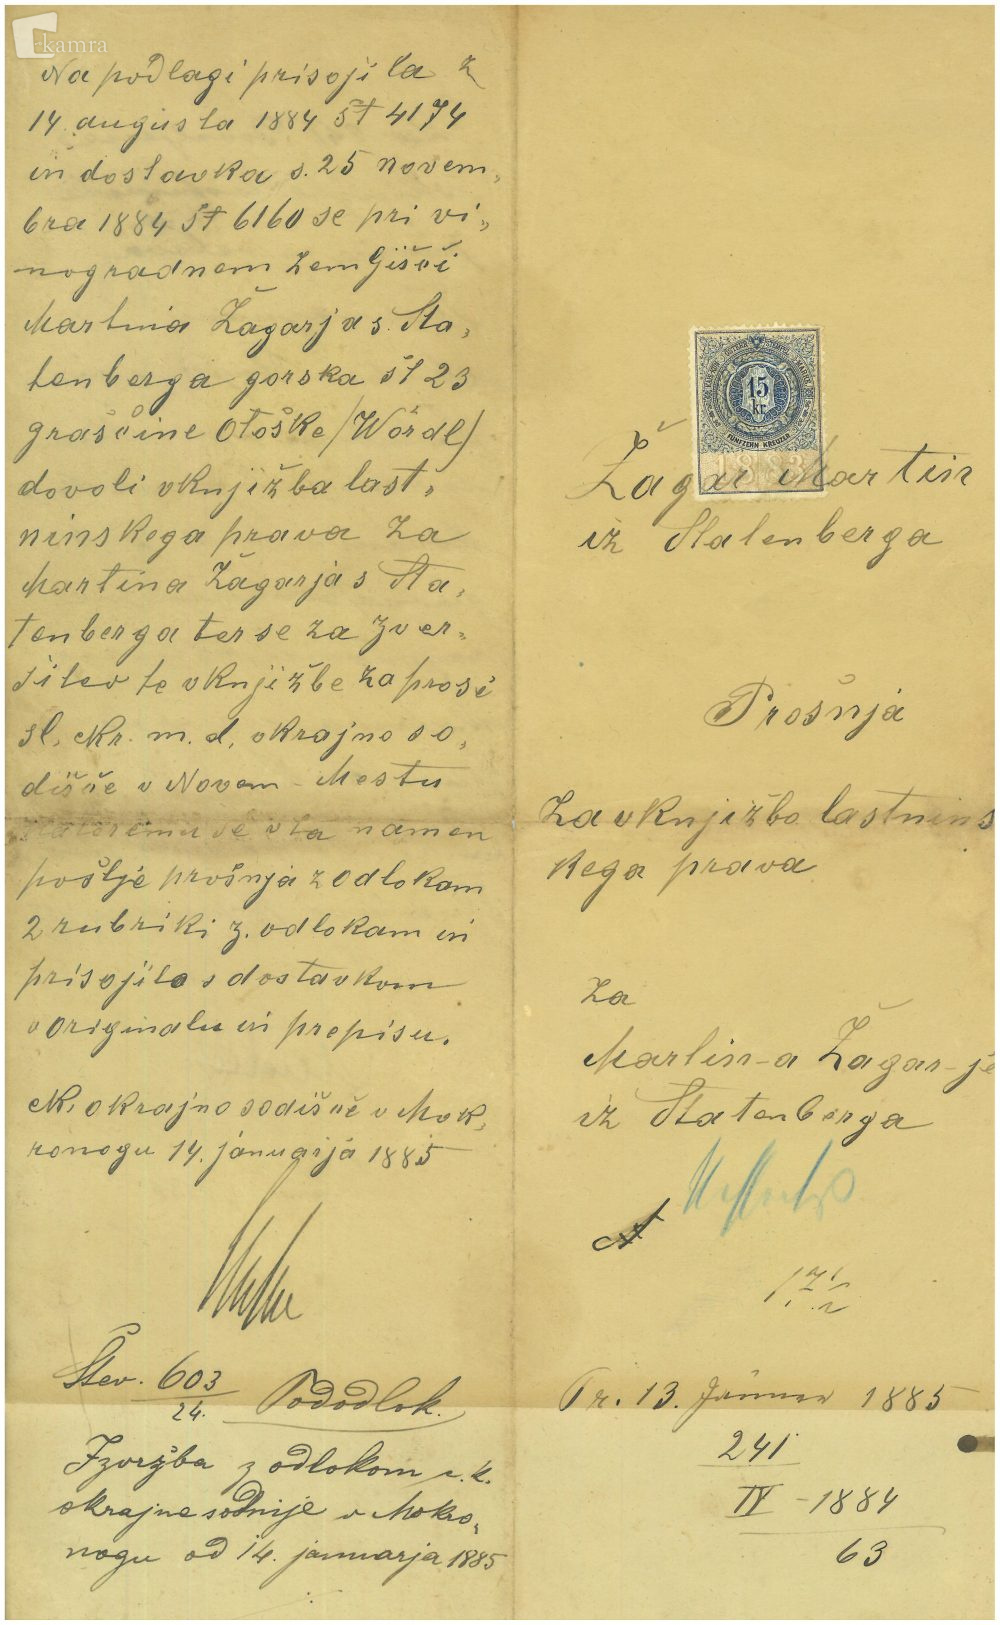 kamra
Na podlagi prisojila z
14. augusta 1884 št 4174
in dostavka s. 25 novem„
bra 1884 št 6160 se pri vi„
nogradnem zemljišči
Martina Žagarja s. Sta„
tenberga gorska št 23
graščine Otoške /Wördl/
dovoli vknjižba last„
ninskega prava za
Martina Žagarja s Šta„
tenberga ter se za zver„
šitev te vknjižbe zaprosi
sl. ck. m. d. okrajno so„
dišče v Novem-Mestu
kateremu se v ta namen
pošlje prošnja z odlokam
2 rubriki z. odlokam in
prisojilo s dostavkom
v originalu in prepisu.
ck. okrajno sodišče v Mok„
ronogu 14. januarja 1885
Štev. 603
24.
Pododlok.
Izvržba z odlokom c. k.
okrajne sodnije v Mokro„
nogu od 14. januarja 1885
15
kr.
FÜNFZEHN KREUZER
1883
Žagar Martin
iz Statenberga
Prošnja
za vknjižbo lastnins
kega prava
za
Martin-a Žagar-je
iz Štatenberga
Pr. 13. Jänner 1885
241
IV - 1884
63